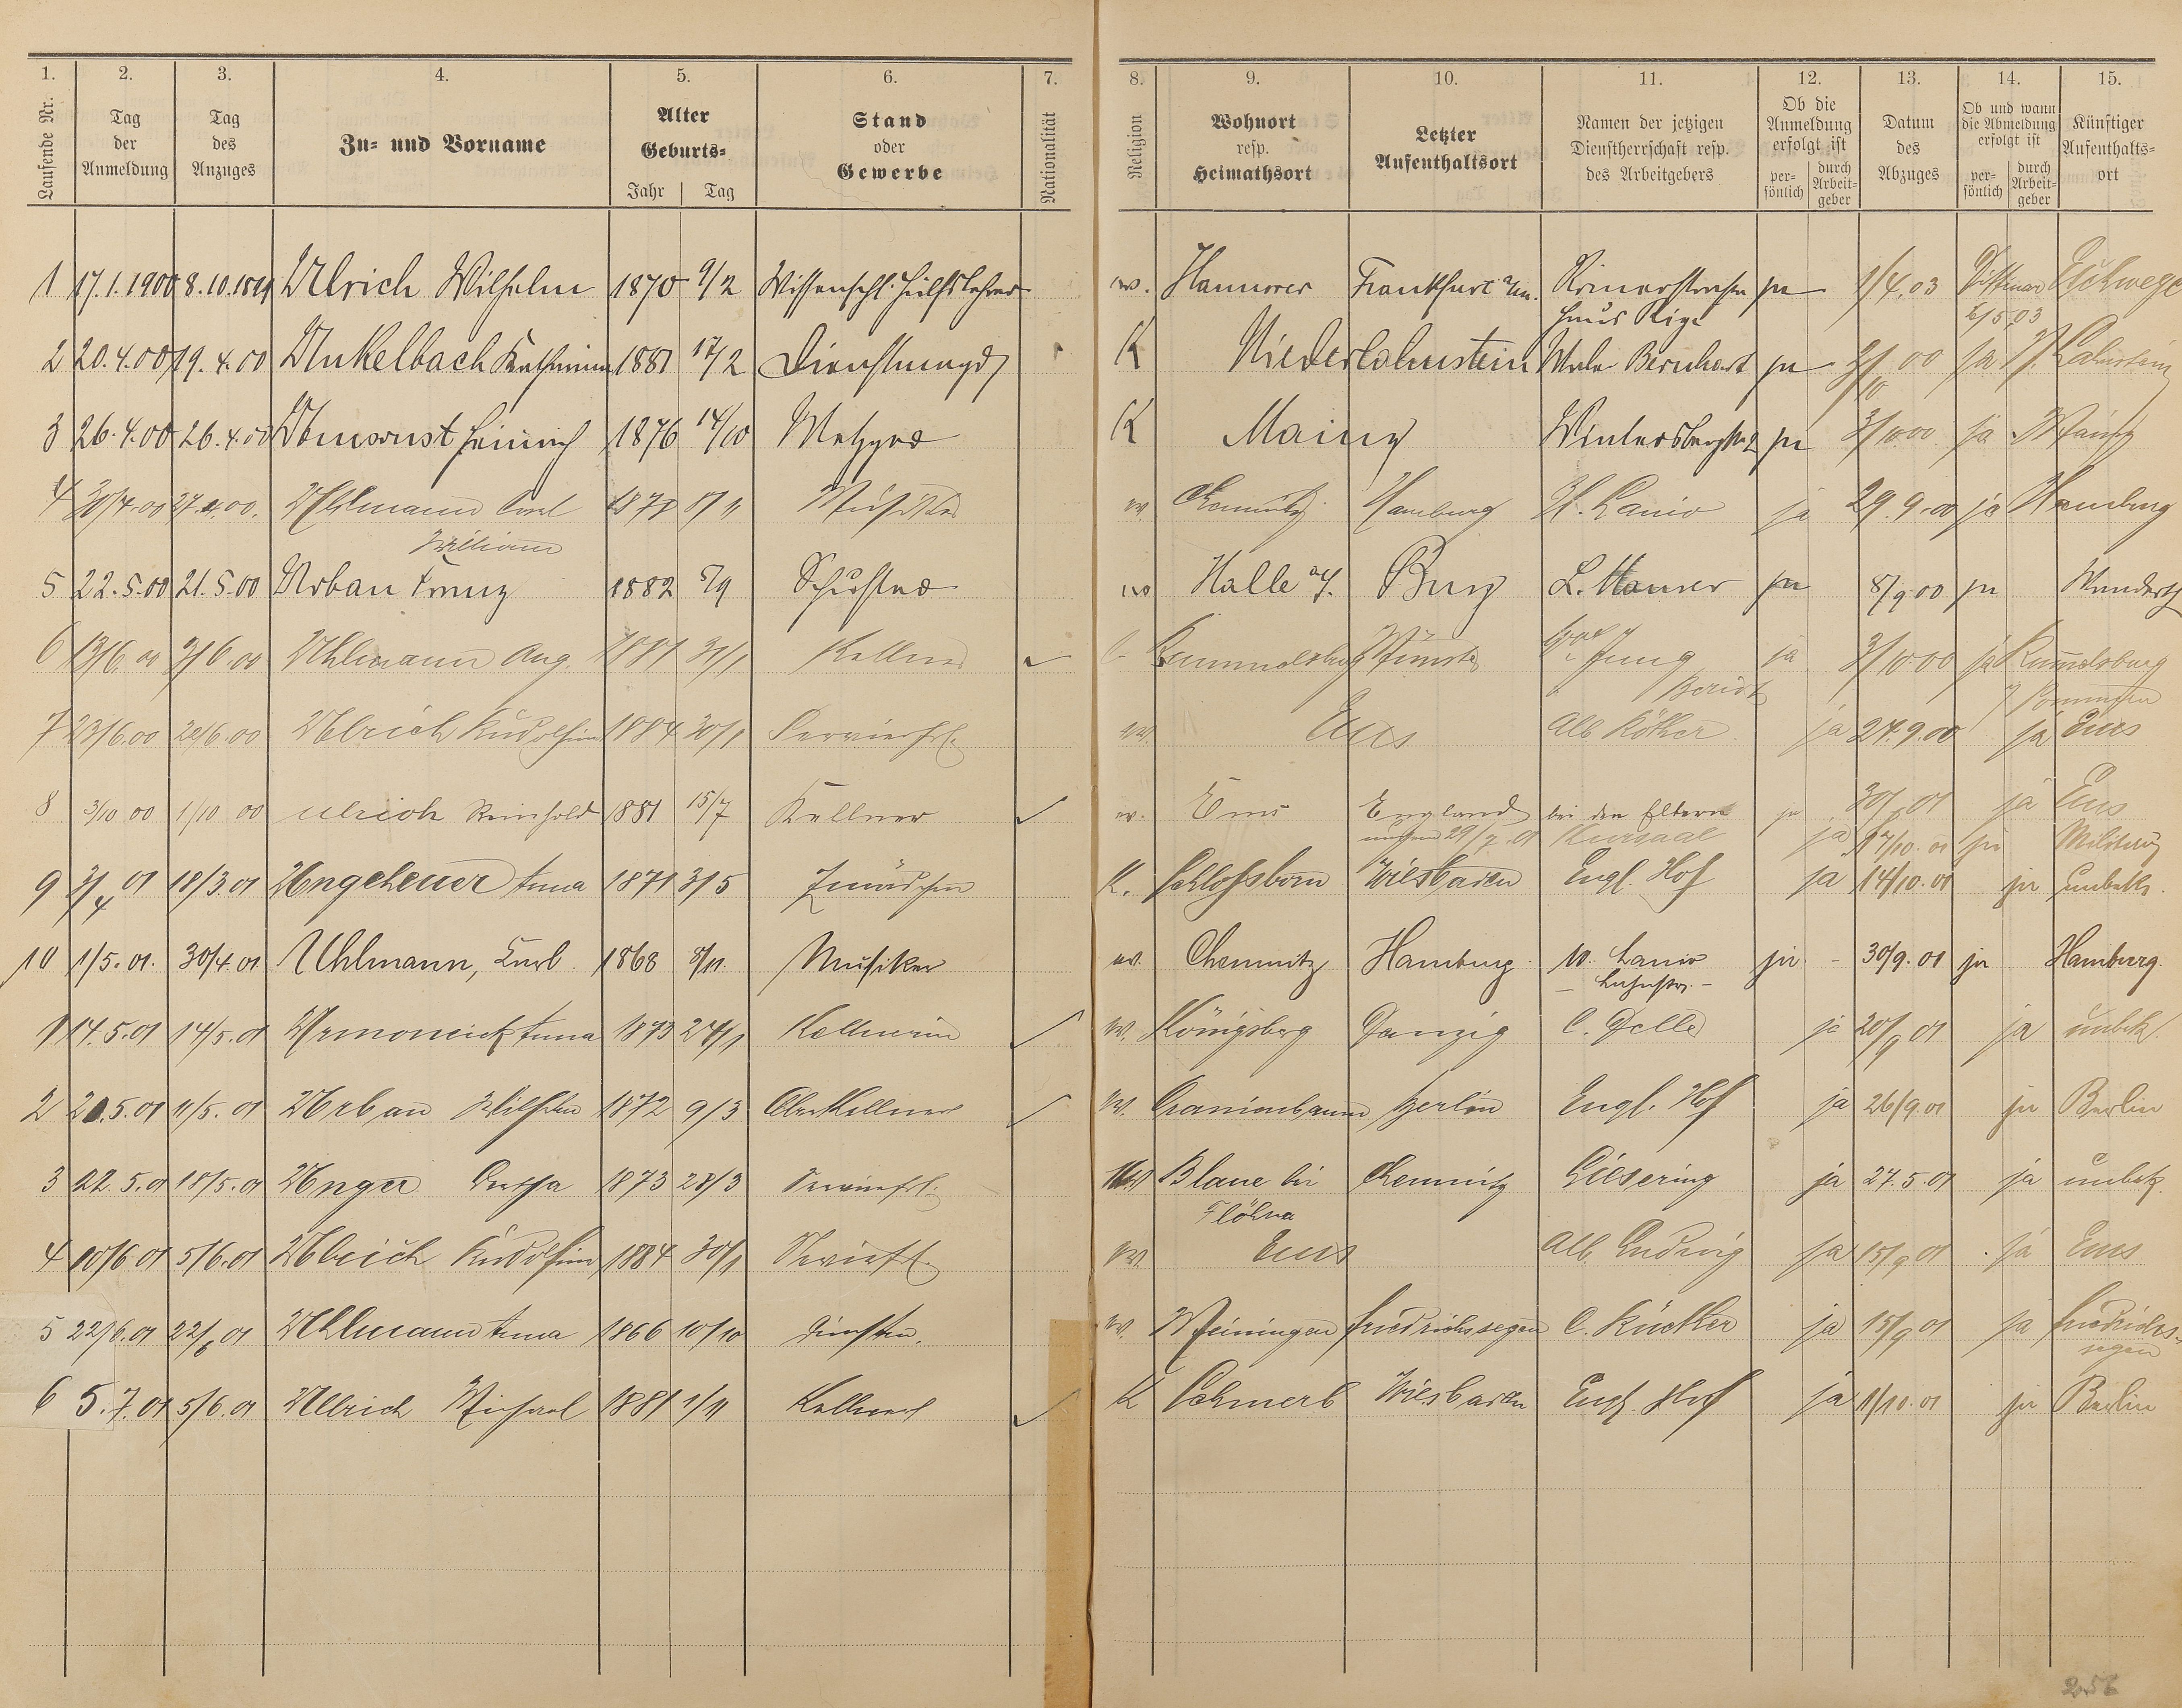 1. 2. 3. 4. 5. 6. 7. 8. 9. 10. 11. 12. 13. 14. 15.
Laufende Nr. Tag der Anmeldung Tag des Anzuges Zu- und Vorname Alter Geburts- Jahr Tag Stand oder Gewerbe Nationalität Religion Wohnort resp. Heimathsort Letzter Aufenthaltsort Namen der jetzigen Dienstherrschaft resp. des Arbeitgebers Ob die Anmeldung erfolgt ist per- sönlich durch Arbeit- geber Datum des Abzuges Ob und wann die Abmeldung erfolgt ist per- sönlich durch Arbeit- geber Künftiger Aufenthalts- ort
1 17.1.1900 8.10.1899 Ulrich Wilhelm 1870 9/2 Wissenschl. Hülfslehrer ev. Hannover Frankfurt a/m. Römerstrasse ja 1/4.03 Eschwege
Haus Riga
2 20.4.00 19.4.00 Unkelbach Katharina 1881 17/2 Dienstmagd K Niederlahnstein Bernhart ja 00 ja N. Lahnstein
3 26.4.00 26.4.00 Heinrich 1876 14/10 Metzger K Mainz Wintersbergstr 2 ja 3/10.00 ja Mainz
4 30/4.00 27.4.00. Uhlmann Curl 8/11 Musiker ev. Chemnitz Hamburg Lanio ja 29.9.00 ja Hamburg
William
5 22.5.00 21.5.00 Urban Franz 1882 5/9 Schuster ev Halle a/S. Burg L. Mauser ja 8/9.00 ja
6 13/6.00 3/6.00 Uhlmann Aug. 1881 31/1 Kellner Rummelsburg Münster Jung ja 3/10.00 ja Rummelsburg
7 23/6.00 20/6.00 Ulrich Rudolfine 1884 30/1 Servierfrl. ev. Ems Alb Röther ja 27.9.00 ja Ems
8 3/10 00 1/10 00 Ulrich Reinhold 1881 15/7 Kellner ev. Ems England bei den Eltern ja 01 ja Ems
29/7.01 Kursaal ja 17/10.01 ja Militär
9 3/4 01 18/3.01 Ungeheuer Anna 1871 3/5 Zmädchen K. Schlossborn Wiesbaden Engl. Hof ja 14/10.01 ja unbek.
10 1/5.01. 30/4.01 Uhlmann, Curl 1868 8/11. Musiker ev. Chemnitz Hamburg W. Lanio ja - 30/9.01 ja Hamburg.
- Lahnstr. -
1 14.5.01 14/5.01 Anna 1873 24/1 Kellnerin ev. Königsberg Danzig C. Delle ja 20/9 01 ja unbek.
2 20.5.01 11/5.01 Urban Wilhelm 1872 9/3 Oberkellner ev. Oranienbaum Berlin Engl. Hof ja 26/9.01 ja Berlin
3 22.5.01 18/5.01 Unger Bertha 1873 28/3 Servierfrl. ev Blaue bei Chemnitz Giesering ja 27.5.01 ja unbek.
Flöhna
4 10/6 01 5/6.01 Ulrich Rudolfine 1884 30/1 Servierfl. ev. Ems Alb. Ludwig ja 15/9 01 ja Ems
5 22/6.01 22/6 01 Uhlmann Anna 1866 10/10 Dienstm. ev. Meiningen Friedrichssegen C. Rücker ja 15/9 01 ja Friedrichs-
segen
6 5.7.01 5/6.01 Ullrich Michael 1881 1/11 Kellner K Schmerb Wiesbaden Engl. Hof ja 1/10.01 ja Berlin
256